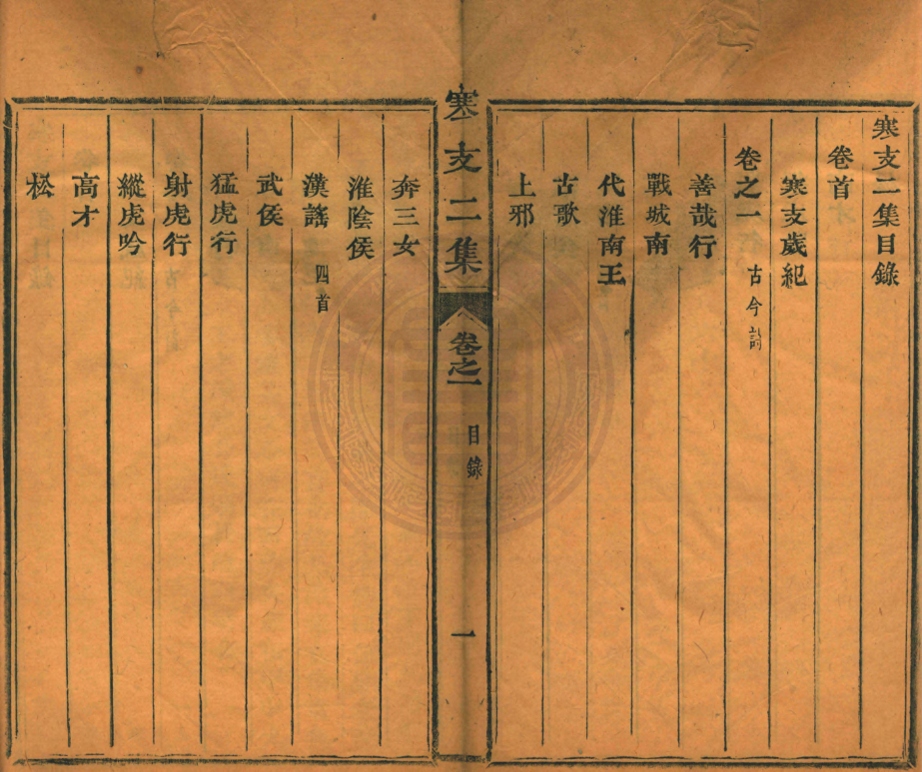 寒支二集目錄
卷首
寒支歲紀
卷之一 古今詩
善哉行
戰城南
代淮南王
古歌
上邪
寒支二集 卷之一 目錄 一
奔三女
淮陰侯
漢謠 四首
武侯
猛虎行
射虎行
縱虎吟
高才
松